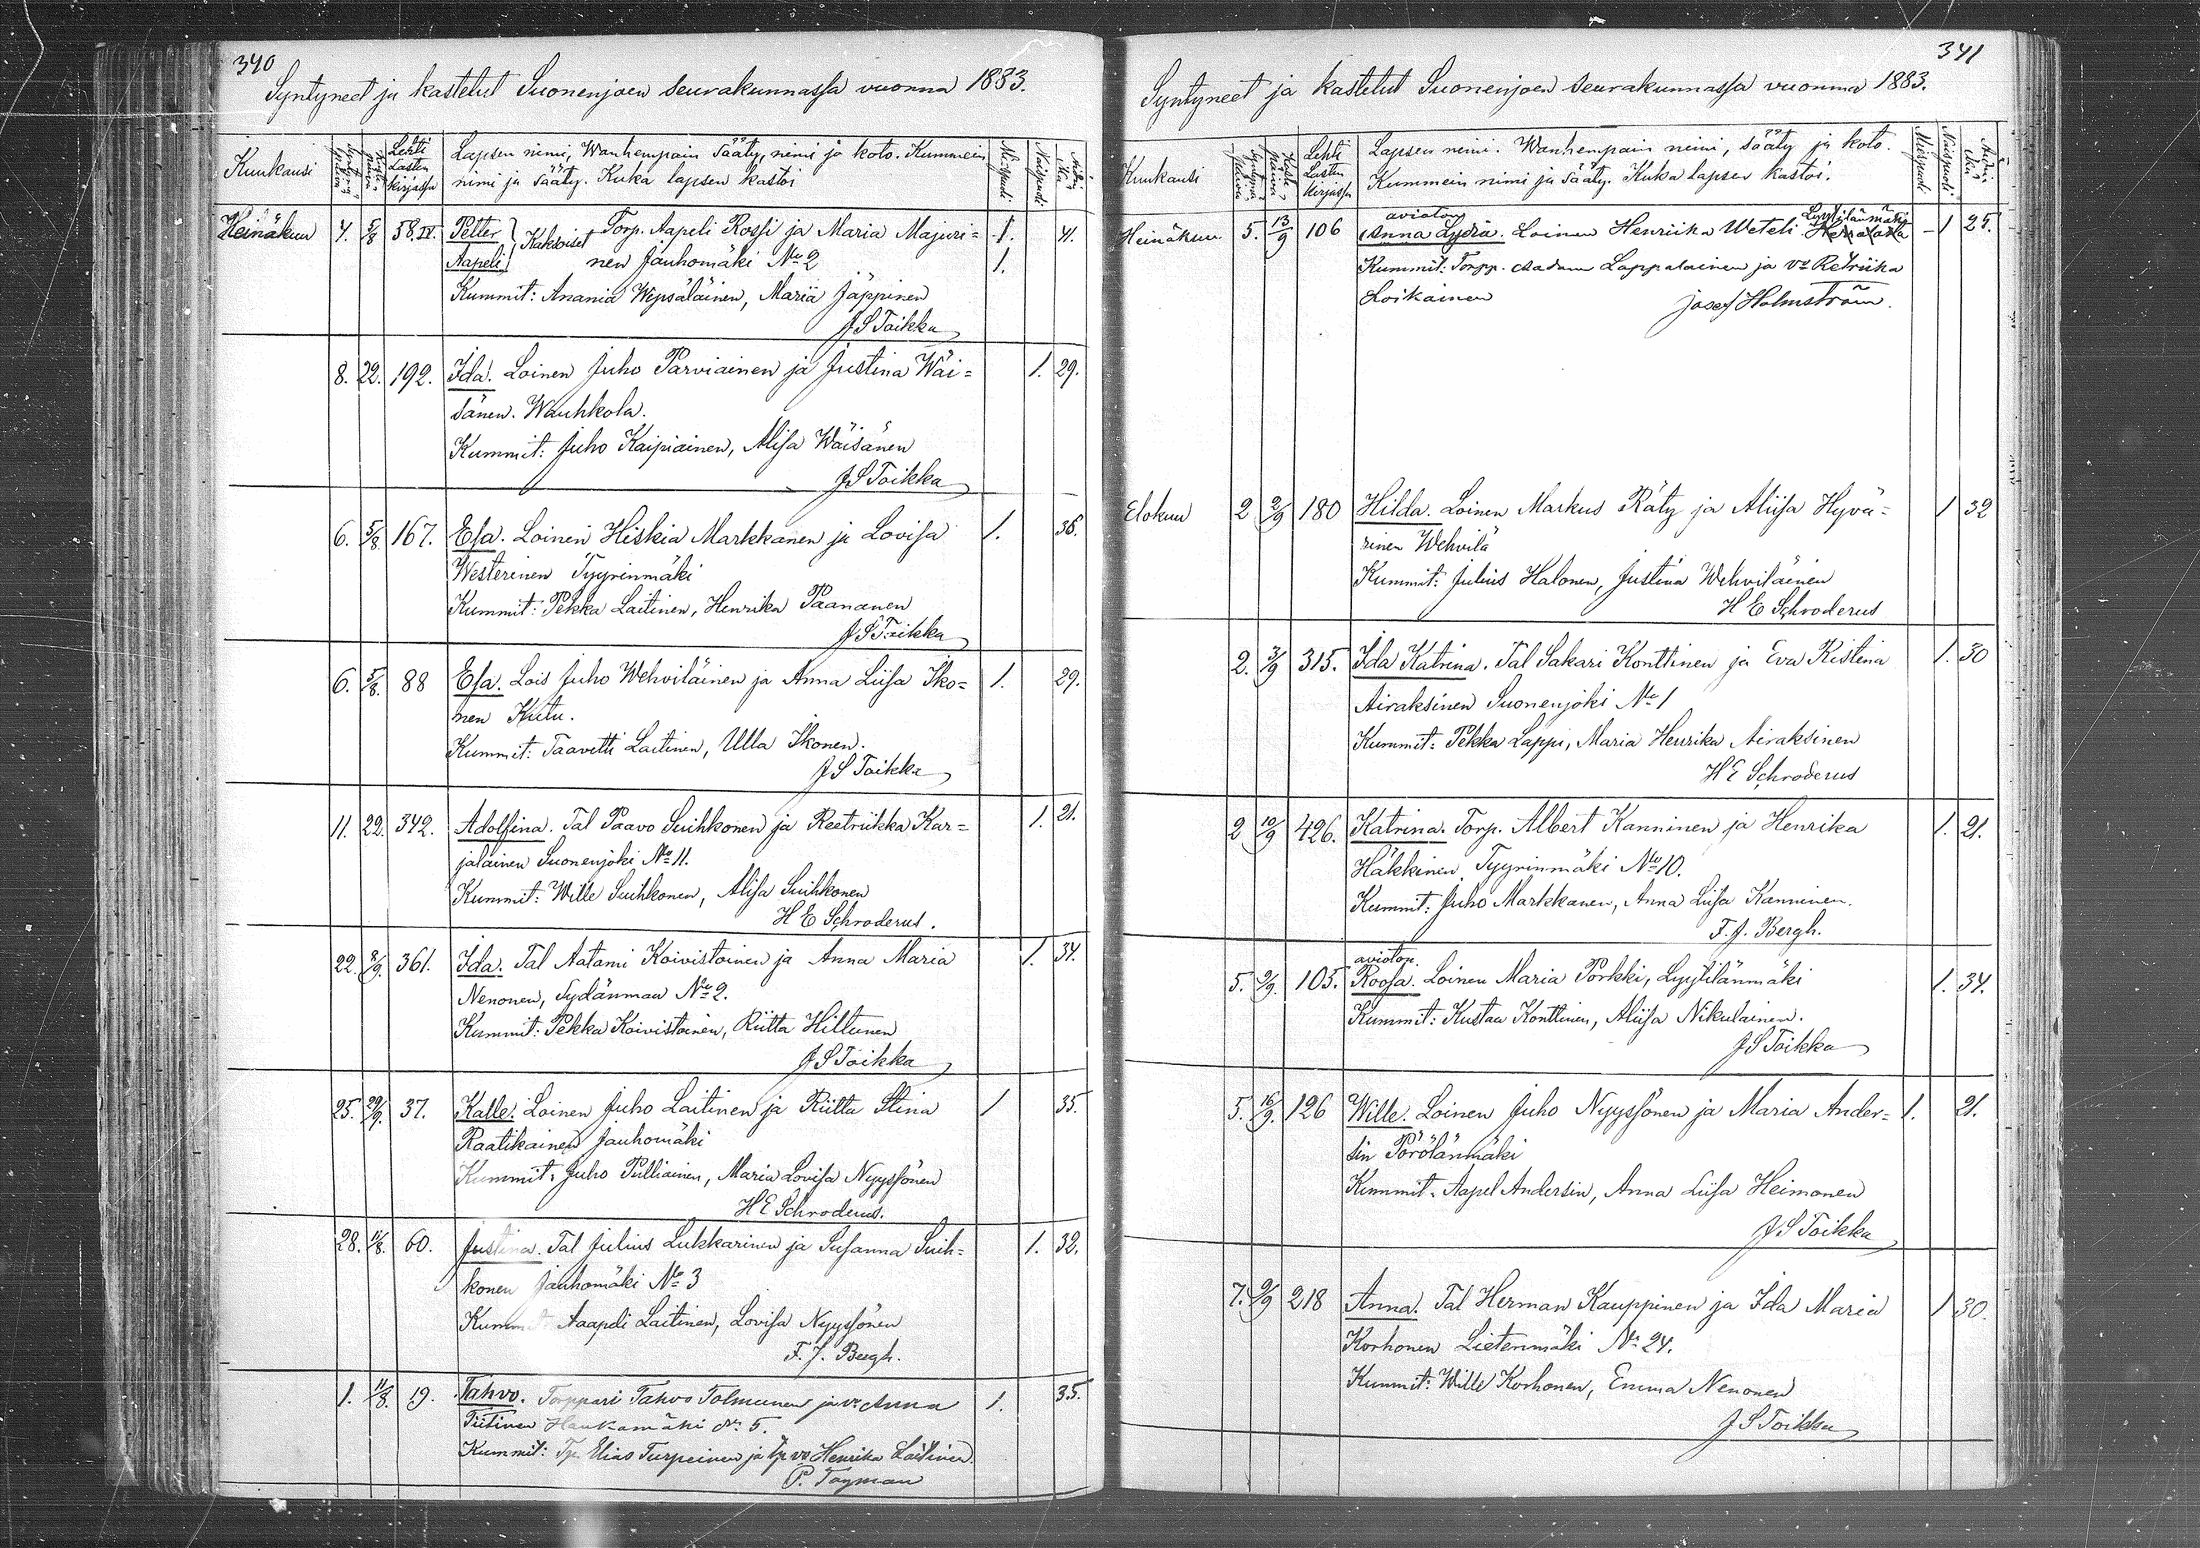 340
Syntyneet ja kastetut Suonenjoen seurakunnassa vuonna 1883.
Kuukausi
Lehti Lasten kirjassa
Lapsen nimi, Wanhempain sääty, nimi ja koto. Kummein
nimi ja sääty. Kuka lapsen kastoi
Miespuoli
Naispuoli
Heinäkuu 4. 5/8 58.IV. Petter } Kaksoiset Torp. Aapeli Roosi ja Maria Majuri= 1. 41.
Aapeli } nen Jauhomäki No 2 1.
Kummit: Anania Wepsäläinen, Maria Jäppinen
J S Toikka
8. 22. 192. Ida. Loinen Juho Parviainen ja Justina Wäi= 1. 29.
sänen. Wauhkola.
Kummit: Juho Kaipiainen, Alisa Wäisänen
J S Toikka
6. 5/8. 167. Esa. Loinen Hiskia Markkanen ja Lovisa 1. 36.
Westerinen Tyyrinmäki
Kummit: Pekka Laitinen, Henrika Paananen
J S Toikka
6. 5/8. 88 Esa. Lois Juho Wehviläinen ja Anna Liisa Iko= 1. 29.
nen Kutu.
Kummit: Taavetti Laitinen, Ulla Ikonen.
J S Toikka
11. 22. 342. Adolfina. Tal Paavo Suihkonen ja Reetrikka Kar= 1. 21.
jalainen Suonenjoki No 11.
Kummit: Wille Suihkonen, Alisa Suihkonen
H E Schroderus.
22. 361. Ida. Tal Aatami Koivistoinen ja Anna Maria 1. 34.
Nenonen, Sydänmaa No 2.
Kummit: Pekka Koivistoinen, Riitta Hiltunen
J S Toikka
25. 29/9. 37. Kalle. Loinen Juho Laitinen ja Riitta Stina 1 35.
Raatikainen Jauhomäki
Kummit: Juho Pulliainen, Maria Lovisa Nyyssönen
H E Schroderus.
28. 11/8. 60. Justina. Tal Julius Lukkarinen ja Susanna Suih= 1. 32.
konen Jauhomäki No 3
Kummit Aapeli Laitinen, Lovisa Nyyssönen
F. J. Bergh.
1. 11/8. 19. Tahvo. Torppari Tahvo Tolmunen ja vo Anna 1. 35.
Tiitinen Haukamäki No. 5.
Kummit: Tp. Elias Turpeinen ja Tp vo Henrika Laitinen
P. Toyman
341
Syntyneet ja kastetut Suonenjoen seurakunnassa vuonna 1883.
Kuukausi
Lehti Lasten kirjassa
Lapsen nimi. Wanhempain nimi, sääty ja koto.
Kummein nimi ja sääty. Kuka lapsen kastoi.
Miespuoli
Naispuoli
avioton Lyytilänmäki
Heinäkuu 5. 13/9 106 Anna Lydia. Loinen Henriika Weteli 1 25.
Kummit: Torpp. Aadam Lappalainen ja vo Retriika
Loikainen
Josef Holmström.
Elokuu 2 2/9 180 Hilda. Loinen Markus Räty ja Aliisa Hyvä= 1 32
rinen Wehvilä
Kummit: Julius Halonen, Justina Wehviläinen
H E Schroderus
2. 3/9 315. Ida Katrina. Tal Sakari Konttinen ja Eva Kistina 1. 30
Airaksinen Suonenjoki No 1
Kummit: Pekka Lappi, Maria Henrika Airaksinen
H E Schroderus
2 10/9 426. Katrina. Torp. Albert Kanninen ja Henrika 1. 21.
Häkkinen Tyyrinmäki No 10.
Kummit: Juho Markkanen, Anna Liisa Kanninen.
F. J. Bergh.
aviotop.
5. 9/9. 105. Roosa. Loinen Maria Porkki, Lyytilänmäki 1. 34.
Kummit: Kustaa Konttinen, Aliisa Nikulainen.
J S Toikka
5. 16/9. 126 Wille. Loinen Juho Nyyssönen ja Maria Ander= 1. 21.
sin Pörölänmäki
Kummit. Aapel Andersin, Anna Liisa Heimonen
J. S Toikka
7. 9/9 218 Anna. Tal Herman Kauppinen ja Ida Maria 1 30.
Korhonen Lietenmäki No. 24.
Kummit: Wille Korhonen, Emma Nenonen
J S Toikka